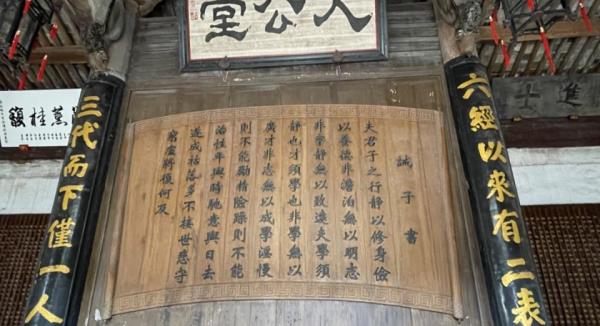 大公堂
六經以來有二表
三代而下僅一人
誡子書
夫君子之行靜以修身儉
以養德非澹泊無以明志
非寧靜無以致遠夫學須
靜也才須學也非學無以
廣才非志無以成學淫慢
則不能勵精險躁則不能
治性年與時馳意與日去
遂成枯落多不接世悲守
窮廬將復何及
進士
薰桂馥